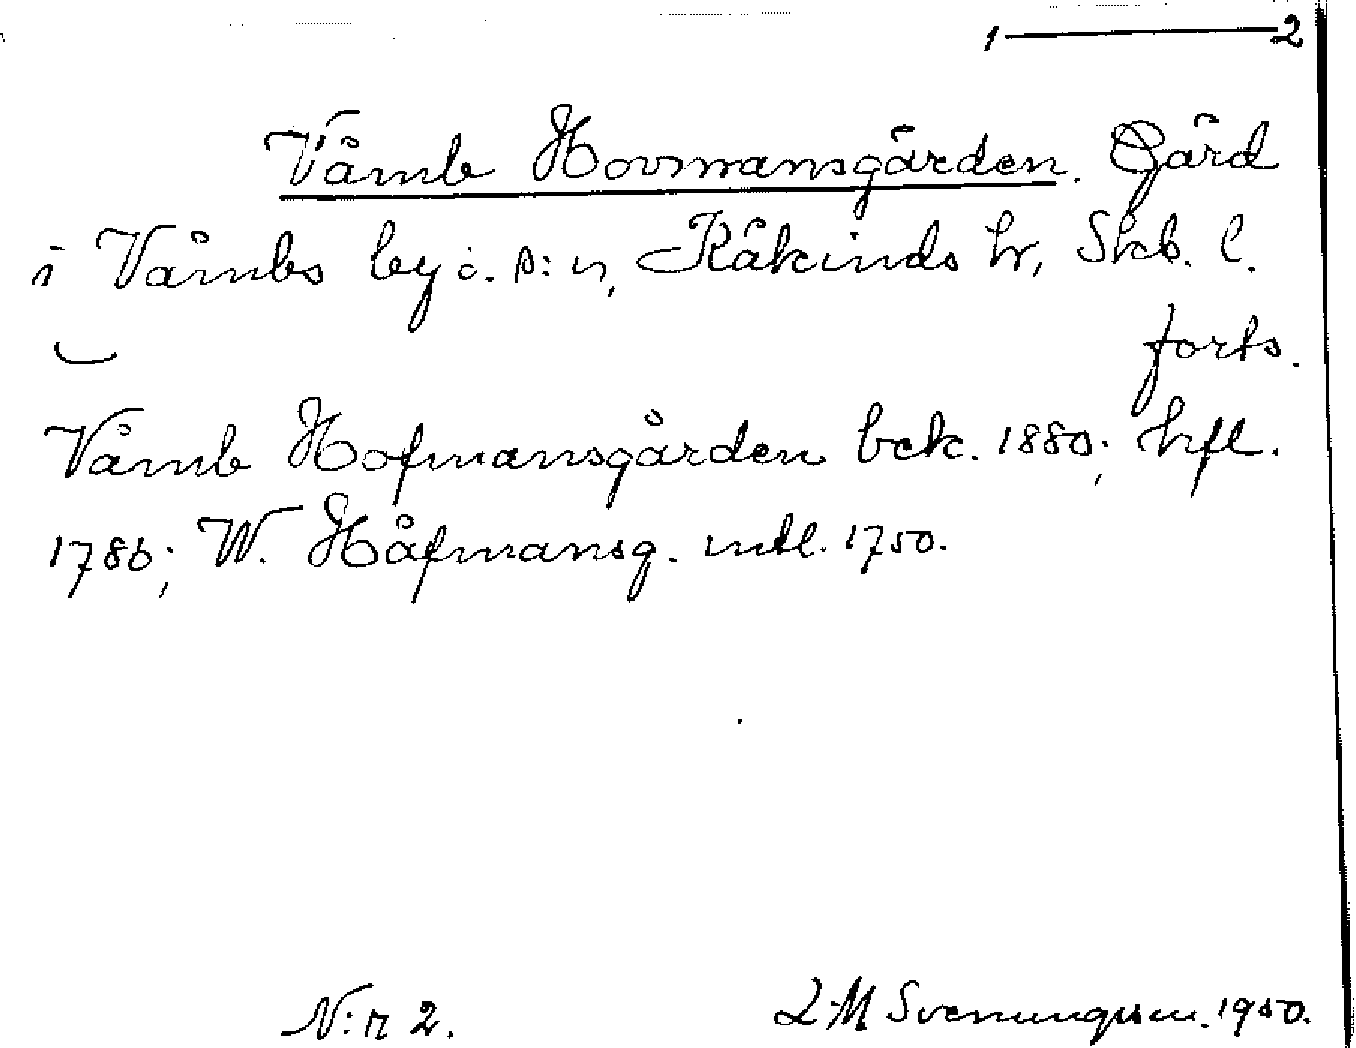 1 — 2
Våmb Hovmansgården. Gård
i Våmbs by o. s:n, Kåkinds hr, Skb. l.
forts.
Våmb Hofmansgården bek. 1880; hfl.
1786; W. Håfmansg. mtl. 1750.
N:r 2. L-M Svenungsson. 1950.